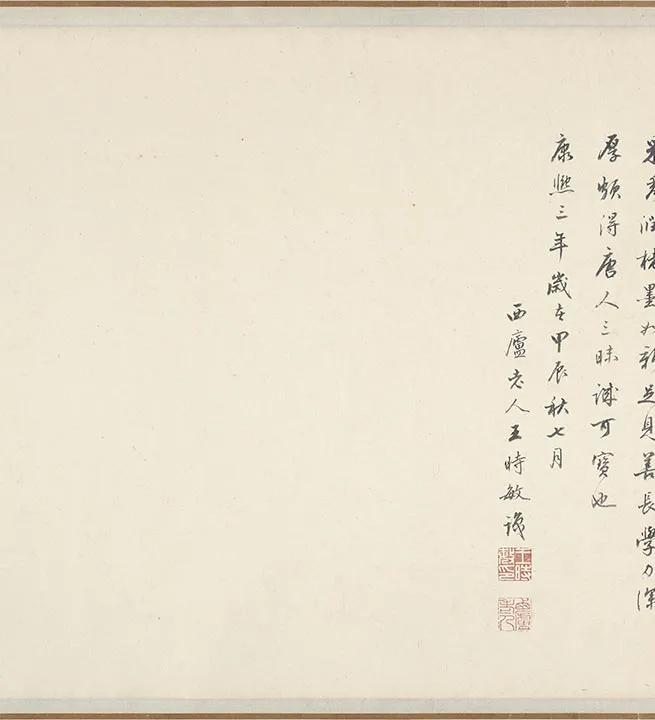 采秀潤楮墨如新足見善長學力深
厚頗得唐人三昧誠可寶也
康熙三年歲在甲辰秋七月
西廬老人王時敏識
王時敏印